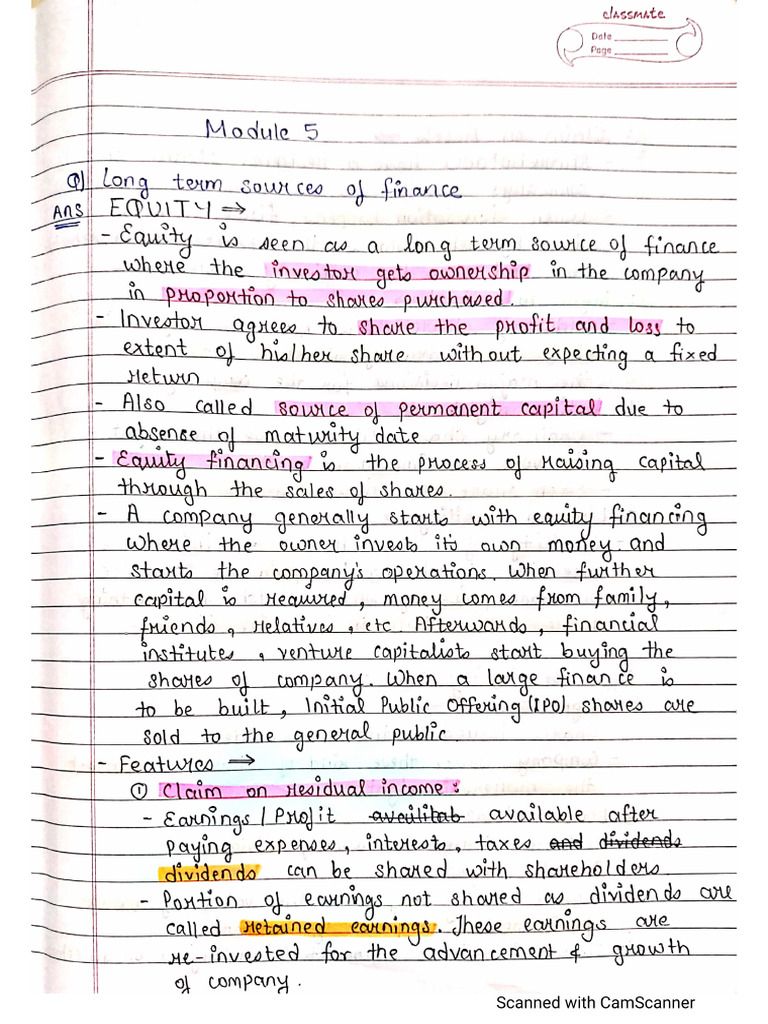 classmate
Date
Page
Module 5
Q) Long term sources of finance
Ans EQUITY →
- Equity is seen as a long term source of finance
where the investor gets ownership in the company
in proportion to shares purchased.
- Investor agrees to share the profit and loss to
extent of his/her share without expecting a fixed
return
- Also called source of permanent capital due to
absence of maturity date
- Equity financing is the process of raising capital
through the sales of shares.
- A company generally starts with equity financing
where the owner invests its own money and
starts the company's operations. When further
capital is required, money comes from family,
friends, relatives, etc. Afterwards, financial
institutes, venture capitalists start buying the
shares of company. When a large finance is
to be built, Initial Public Offering (IPO) shares are
sold to the general public.
- Features →
① Claim on residual income:
- Earnings / Profit availitab available after
paying expenses, interests, taxes and dividends
dividends can be shared with shareholders
- Portion of earnings not shared as dividends are
called retained earnings. These earnings are
re-invested for the advancement & growth
of company.
Scanned with CamScanner